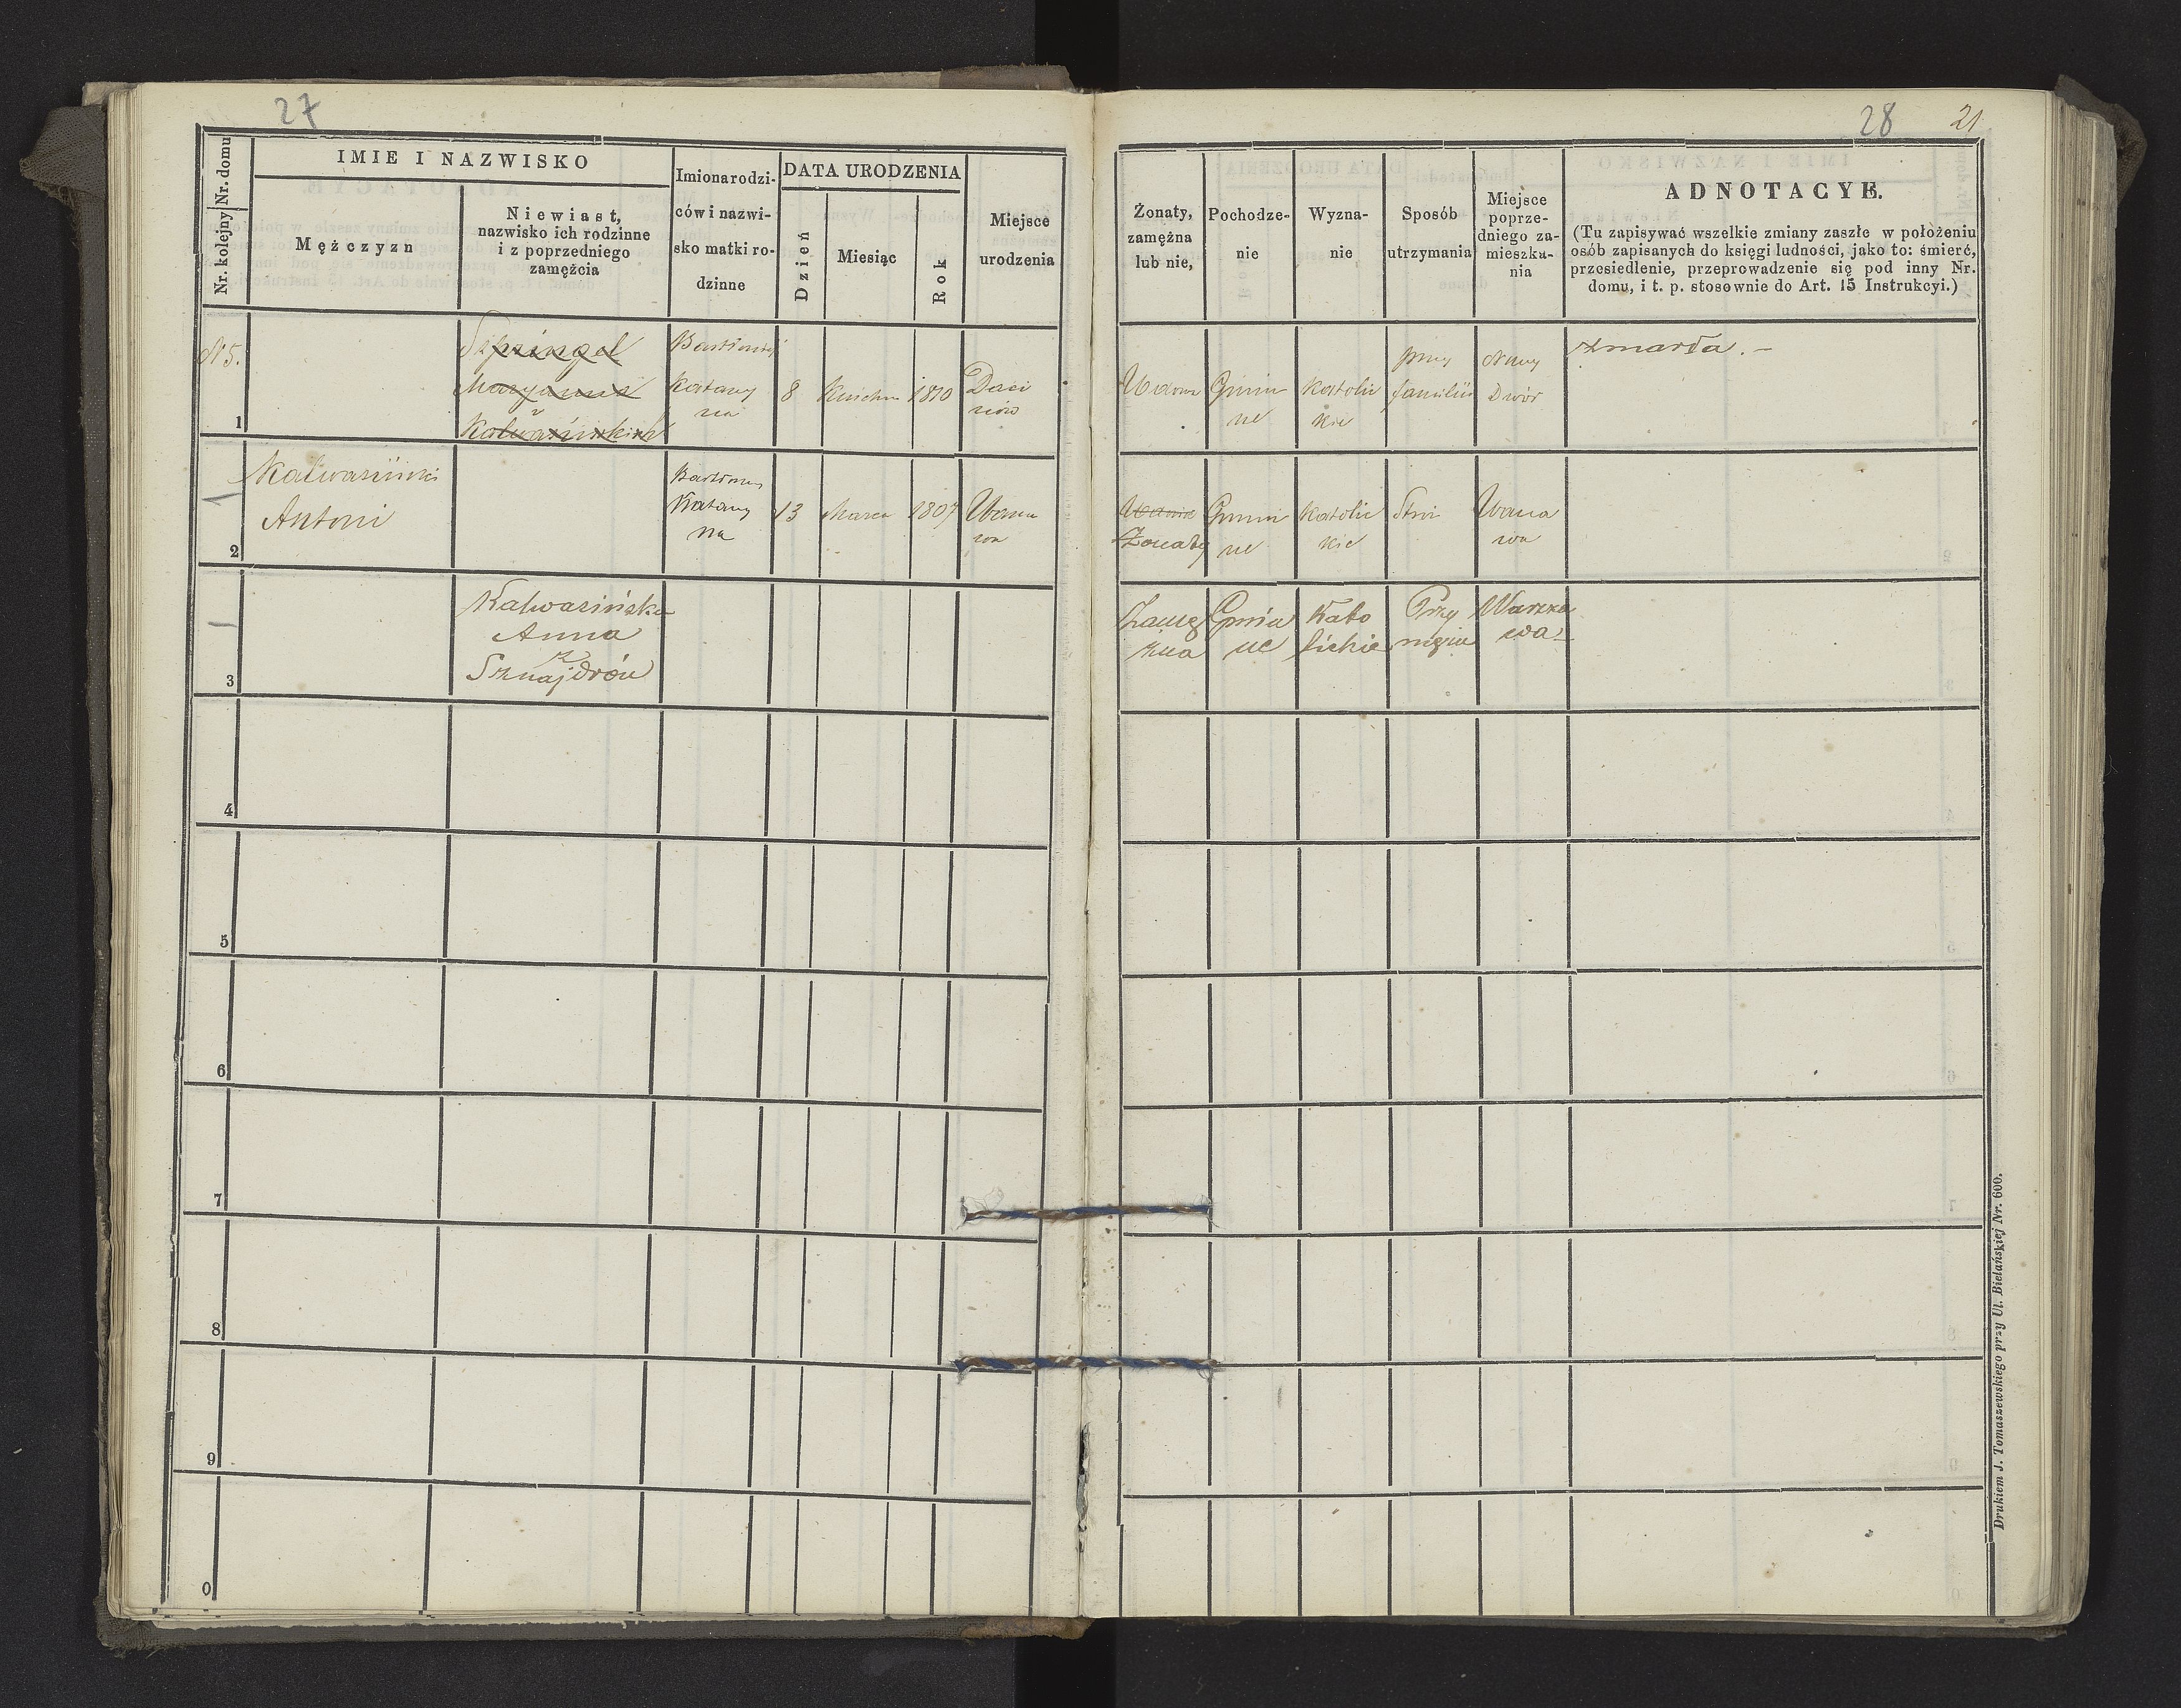 27
28 21
Nr. kolejny Nr. domu
IMIE I NAZWISKO
Mężczyzn
Niewiast,
nazwisko ich rodzinne
i z poprzedniego
zamężcia
Imiona rodzi-
ców i nazwi-
sko matki ro-
dzinne
DATA URODZENIA
Dzień
Miesiąc
Rok
Miejsce
urodzenia
Żonaty,
zamężna
lub nie,
Pochodze-
nie
Wyzna-
nie
Sposób
utrzymania
Miejsce
poprze-
dniego za-
mieszka-
nia
ADNOTACYE.
(Tu zapisywać wszelkie zmiany zaszłe w położeniu
osób zapisanych do księgi ludności, jako to: śmierć,
przesiedlenie, przeprowadzenie się pod inny Nr.
domu, i t. p. stosownie do Art. 15 Instrukcyi.)
N 5.
1
Szpringel
Maryanna
z
Kalwasińskich
Katarzy
na
8
1810
Wdowa
Gmin
ne
Katolic
kie
przy
familii
Nowy
Dwór
zmarła. —
2
Kalwasiński
Antoni
Katarzy
na
13
Marca
1807
Żonaty
Gmin
ne
Katolic
kie
3
Kalwasińska
Anna
z
Sznajdrów
Zamę
żna
Gmin
ne
Kato
lickie
Przy
mężu
Warsza
wa
4
5
6
7
8
9
0
Drukiem J. Tomaszewskiego przy Ul. Bielańskiej Nr. 600.